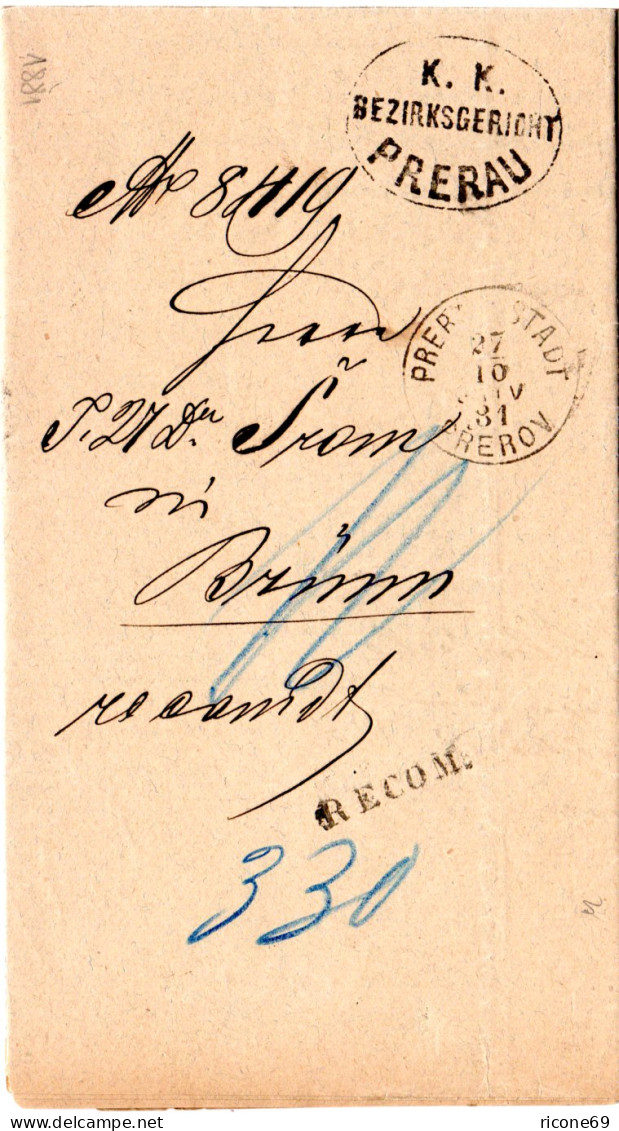 K. K.
BEZIRKSGERICHT
PRERAU
1881
Nr 8419
Herrn
Dr. Šrom
in
Brünn
recomdt
RECOM.
330
27
10
81
PREROV
STADT
www.delcampe.net
ricone69